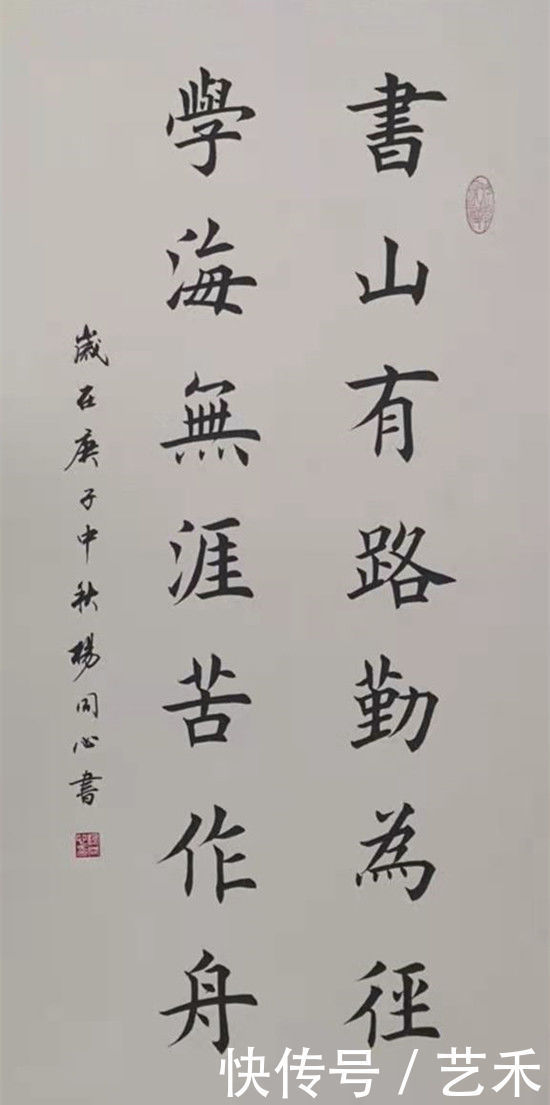 書山有路勤為徑
學海無涯苦作舟
歲在庚子中秋楊同心書
快传号 / 艺禾